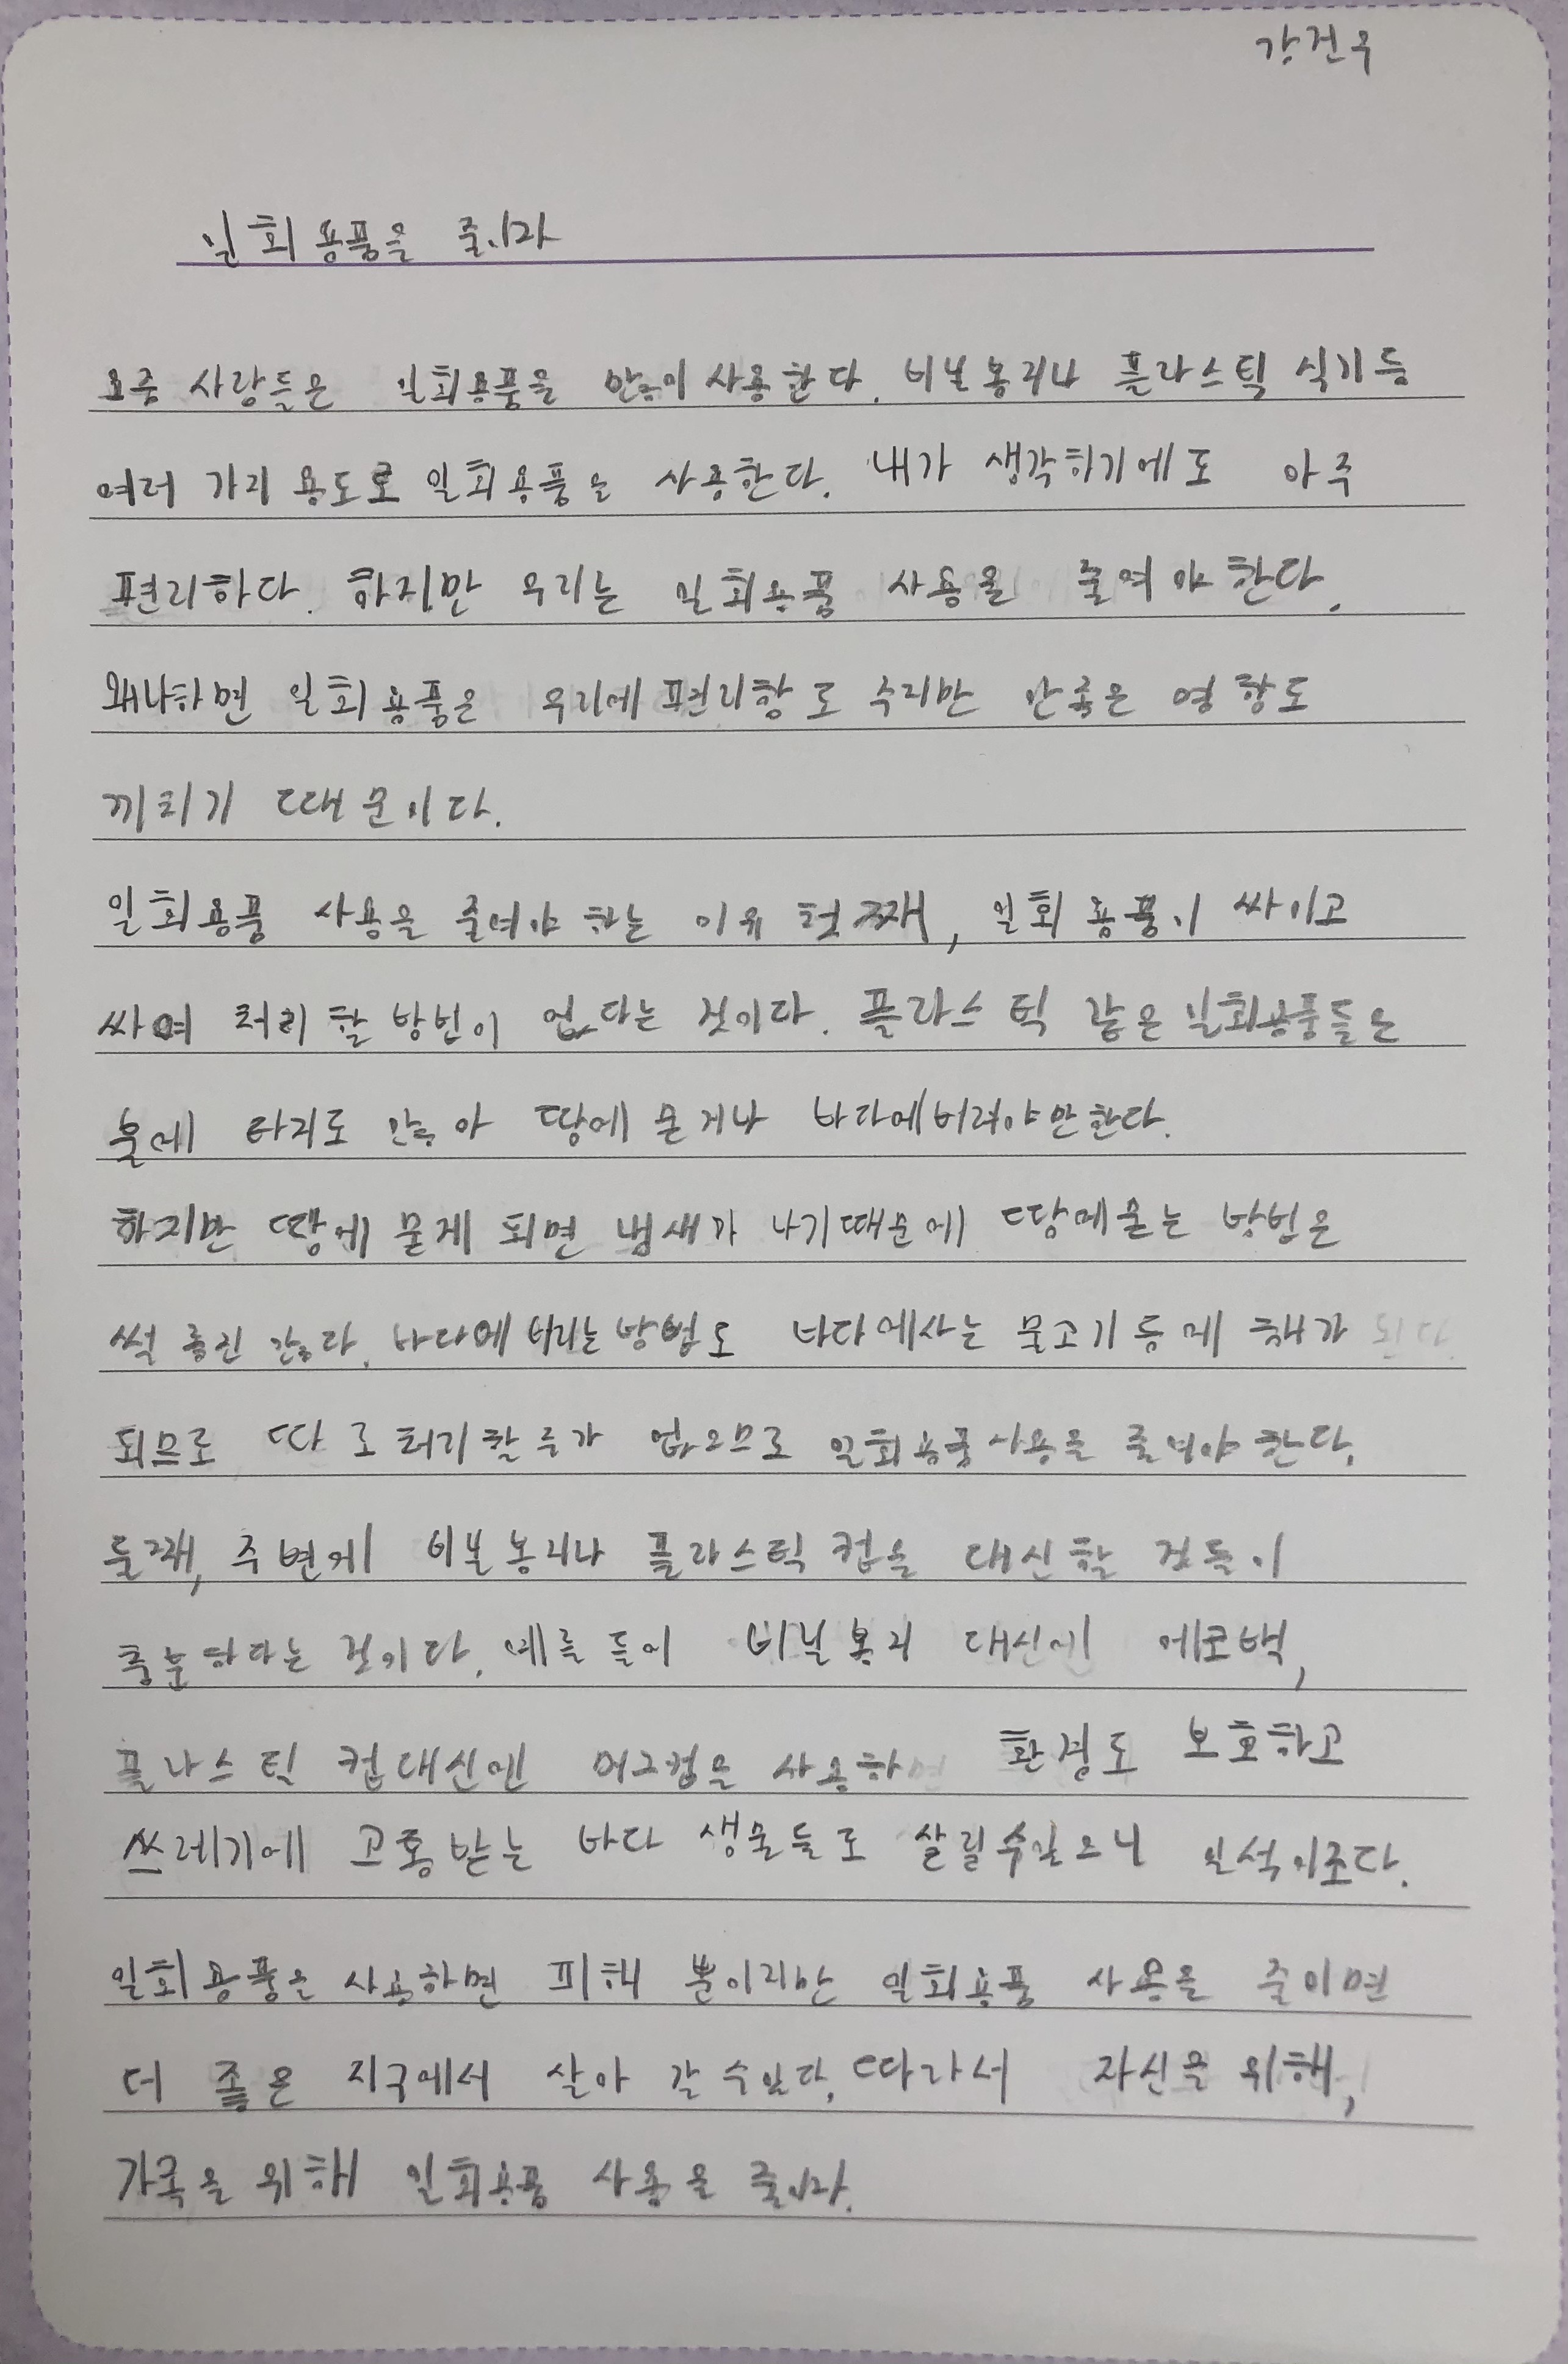 강건우
일회용품을 줄이자
요즘 사람들은 일회용품을 많이 사용한다. 비닐봉지나 플라스틱 식기등
여러 가지 용도로 일회용품을 사용한다. 내가 생각하기에도 아주
편리하다. 하지만 우리는 일회용품 사용을 줄여야 한다.
왜냐하면 일회용품은 우리에 편리함도 주지만 안좋은 영향도
끼치기 때문이다.
일회용품 사용을 줄여야 하는 이유 첫째, 일회용품이 싸이고
싸여 처리할 방법이 없다는 것이다. 플라스틱 같은 일회용품들은
불에 타지도 않아 땅에 묻거나 바다에버려야만한다.
하지만 땅에 묻게 되면 냄새가 나기때문에 땅에묻는 방법은
썩 좋진 않다. 바다에 버리는 방법도 바다에사는 물고기등에 해가
되므로 따로 처리할 수가 없으므로 일회용품사용을 줄여야 한다.
둘째, 주변에 비닐봉지나 플라스틱 컵을 대신할 것들이
충분하다는 것이다. 예를 들어 비닐봉지 대신에 에코백,
플라스틱 컵대신엔 머그컵을 사용하면 환경도 보호하고
쓰레기에 고통받는 바다 생물들도 살릴수있으니 일석이조다.
일회용품은 사용하면 피해 뿐이지만 일회용품 사용을 줄이면
더 좋은 지구에서 살아 갈 수있다. 따라서 자신을 위해,
가족을 위해 일회용품 사용을 줄이자.